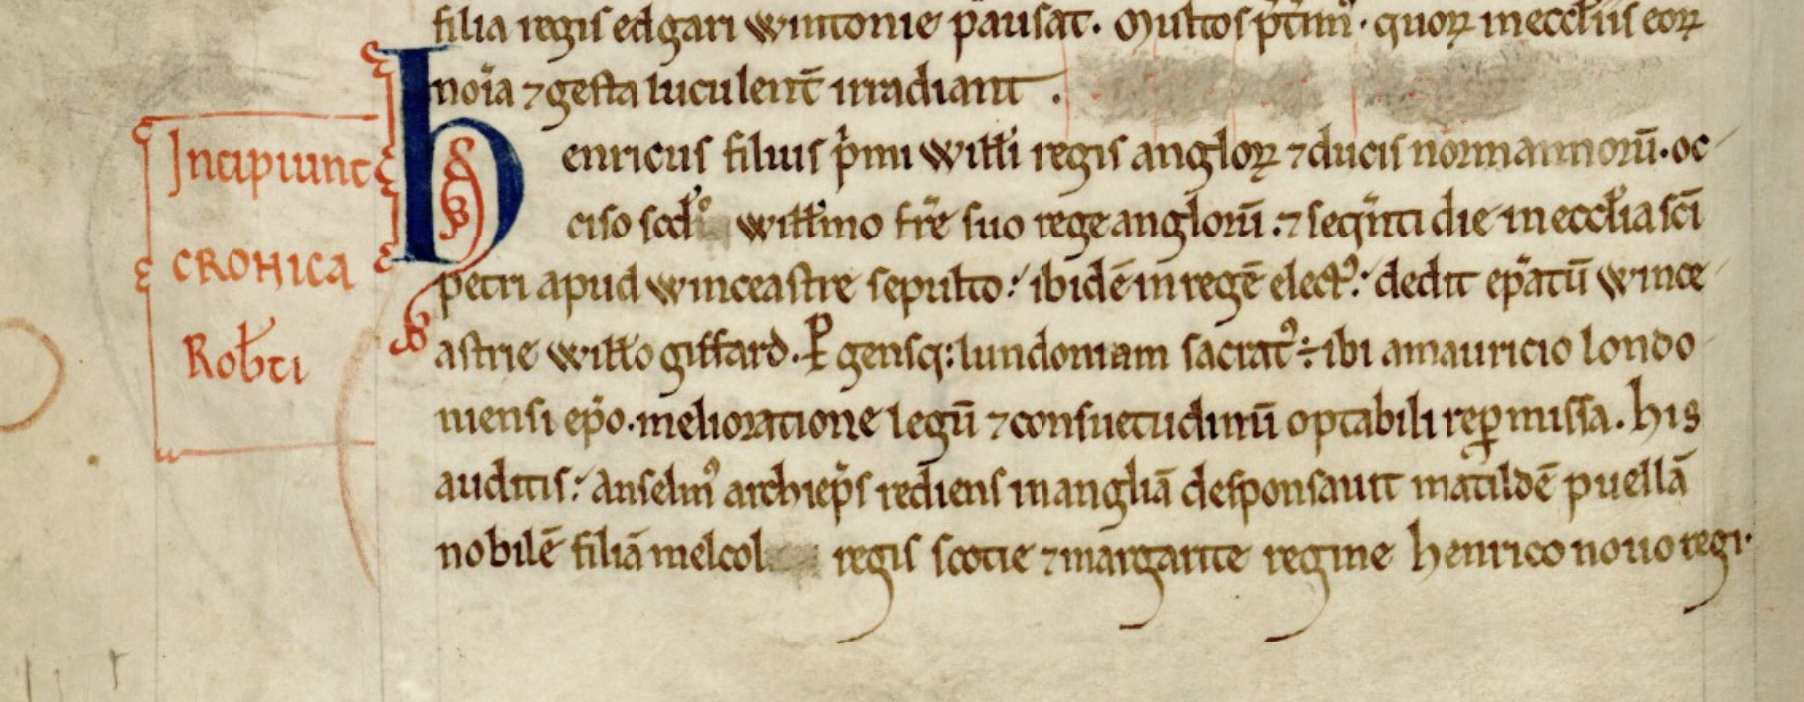 filia regis edgari wintonie pausat. Multos p̄t̄mı̄ꝰ. quoꝝ in ecctiis eoꝝ
noı̄a ⁊ gesta luculent̄ irradiant.
Incipiunt
CRONICA
Rob̄ti
henricus filius p̄mi witti regis angloꝝ ⁊ ducis normannorū. oc
ciso scd̄o wittmo fr̄e suo rege anglorū. ⁊ seq̄nti die in ecctia sc̄i
petri apud winceastre sepulto: ibidē in regē electꝰ: dedit ep̄atū wince
astrie witto giffard. Pgensq: lundoniam sacratꝰ: ibi a mauricio londo
niensi ep̄o. melioratione legū ⁊ consuetudinū optabili repꝑmissa. his
auditis: anselmꝰ archiep̄s rediens in angliā desponsauit matildē puellā
nobilē filiā melcol regis scotie ⁊ margarite regine henrico nouo regi.